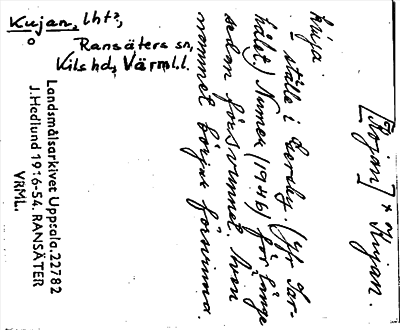 Kujan, lht?,
Ransäters sn,
Kils hd, Värml.l.
Landsmålsarkivet Uppsala. 22782
J. Hedlund 1916-54. RANSÄTER
VRML.
Kujan.
ställe i
hålet.) Numera (1946) för länge
sedan försvunnet. Även
namnet börjar försvinna.